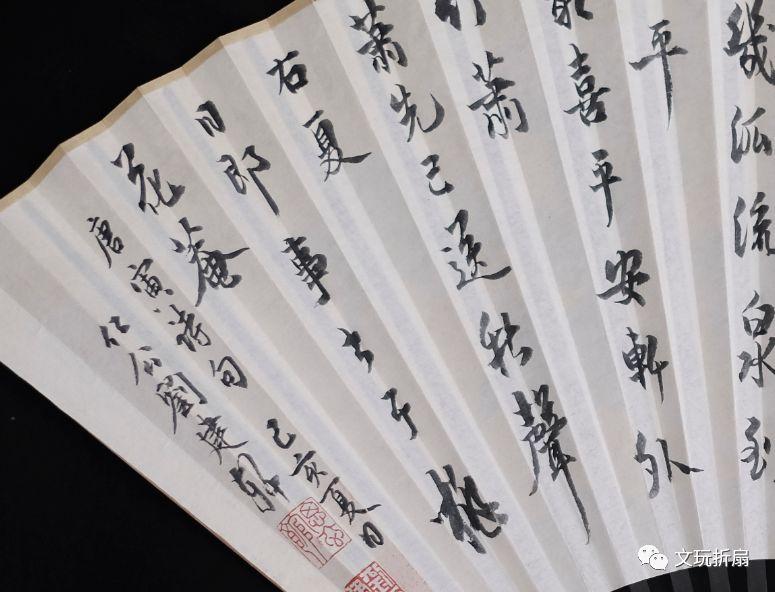 幾派流泉到
平
喜平安軒外
蕭
蕭先已送秋聲
右夏
日即事書於桃
花菴
唐寅詩句 己亥夏日
劉建
文玩折扇